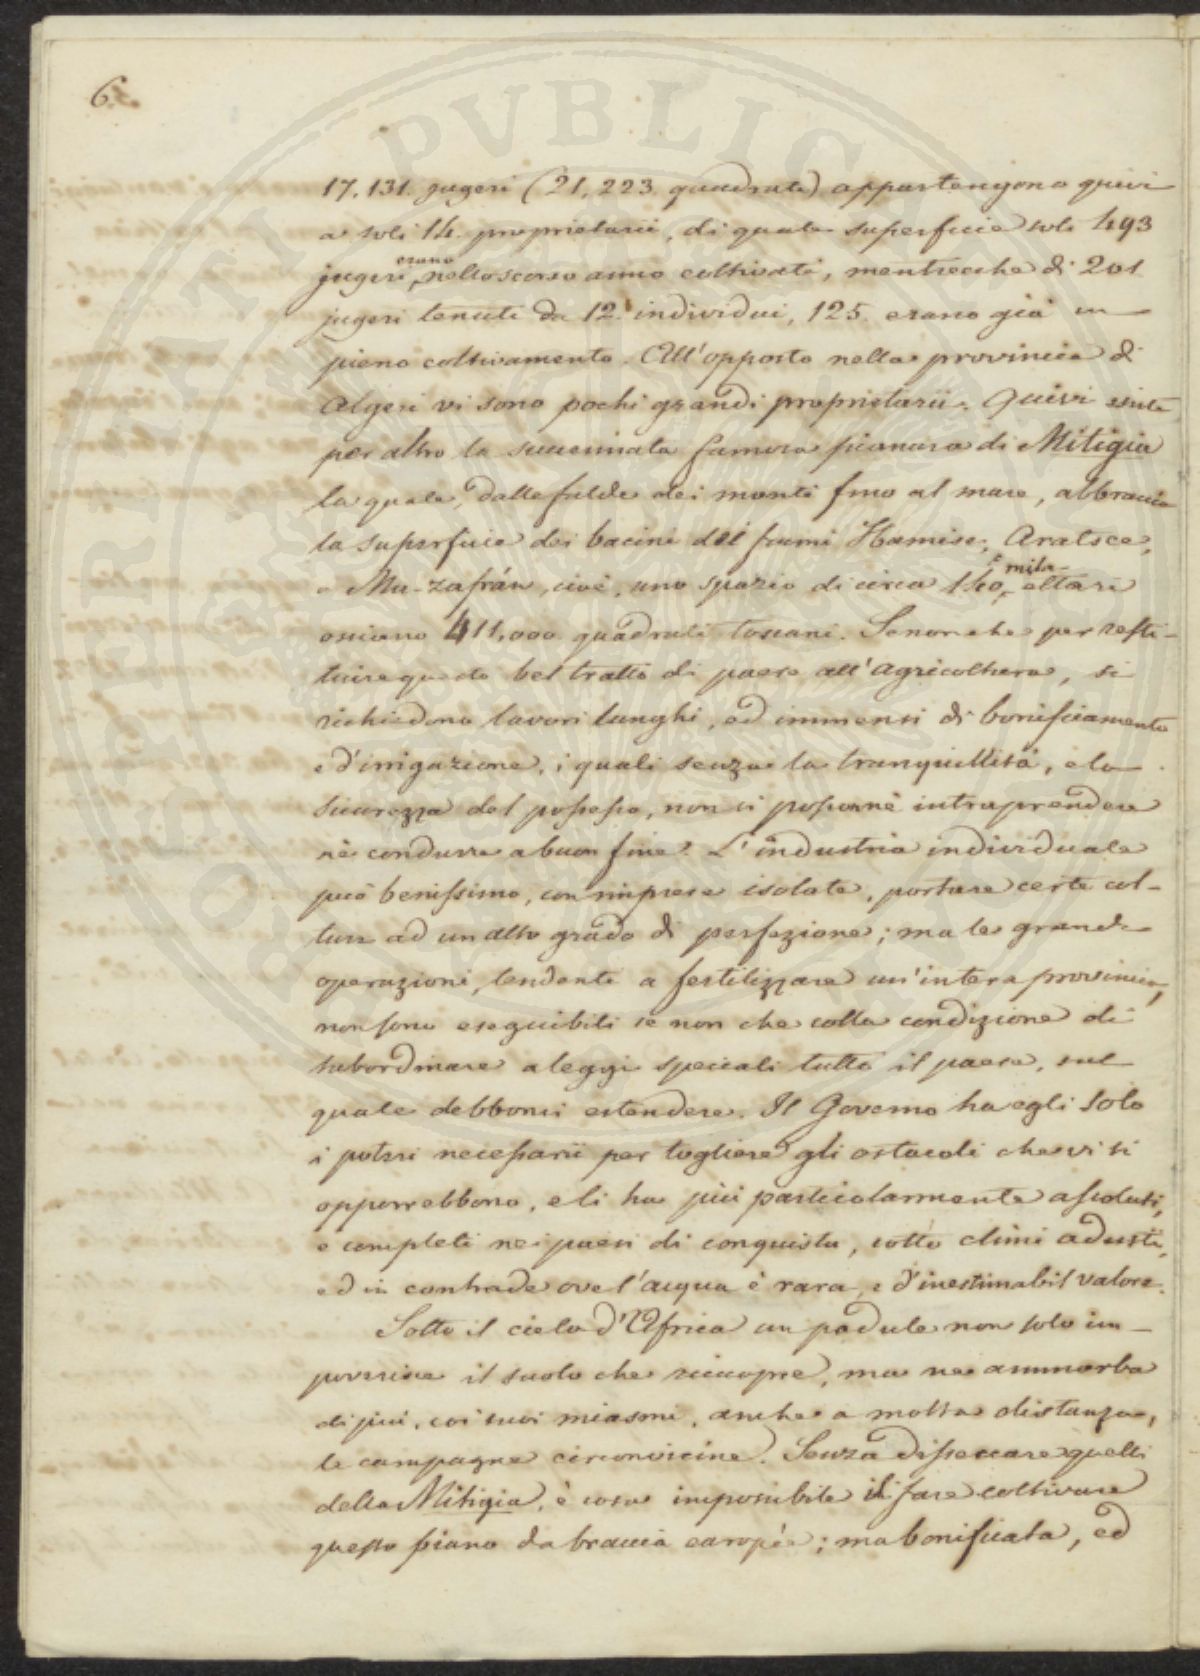 6.
17.131. jugeri (21.223 quadrati) appartengono quivi
a soli 14. proprietarii, di quale superficie soli 493
jugeri erano nello scorso anno coltivati, mentrecche di 201
jugeri tenuti da 12. individui, 125. erano già in
pieno coltivamento. All'opposto nella provincia di
Algeri vi sono pochi grandi proprietarii. Quivi esiste
per altro la succennata famosa pianura di Mitigia
la quale, dalle falde dei monti fino al mare, abbraccia
la superficie dei bacini dei fiumi Hamise, Aratsce,
e Ma-zafrán, cioè, uno spazio di circa 140, mila ettari
ossiano 411,000 quadrati toscani. Senonche per resti-
tuire questo bel tratto di paese all'agricoltura, si
richiedono lavori lunghi, ed immensi di bonificamento
e d'irrigazione, i quali senza la tranquillità, e la
sicurezza del possesso, non si possono nè intraprendere
nè condurre a buon fine. L'industria individuale
può benissimo, con imprese isolate, portare certe col-
ture ad un alto grado di perfezione; ma le grandi
operazioni, tendenti a fertilizzare un'intera provincia,
non sono eseguibili se non che colla condizione di
subordinare a leggi speciali tutto il paese, sul
quale debbonsi estendere. Il Governo ha egli solo
i poteri necessarii per togliere gli ostacoli che vi si
opporrebbono, e li ha più particolarmente assoluti,
e completi nei paesi di conquista, sotto climi adusti,
ed in contrade ove l'acqua è rara, e d'inestimabil valore.
Sotto il cielo d'Africa un padule non solo im-
poverisce il suolo che ricuopre, ma ne ammorba
di più, coi suoi miasmi, anche a molta distanza,
le campagne circonvicine. Senza disseccare quelli
della Mitigia, è cosa impossibile il fare coltivare
questo piano da braccia europée; ma bonificata, ed